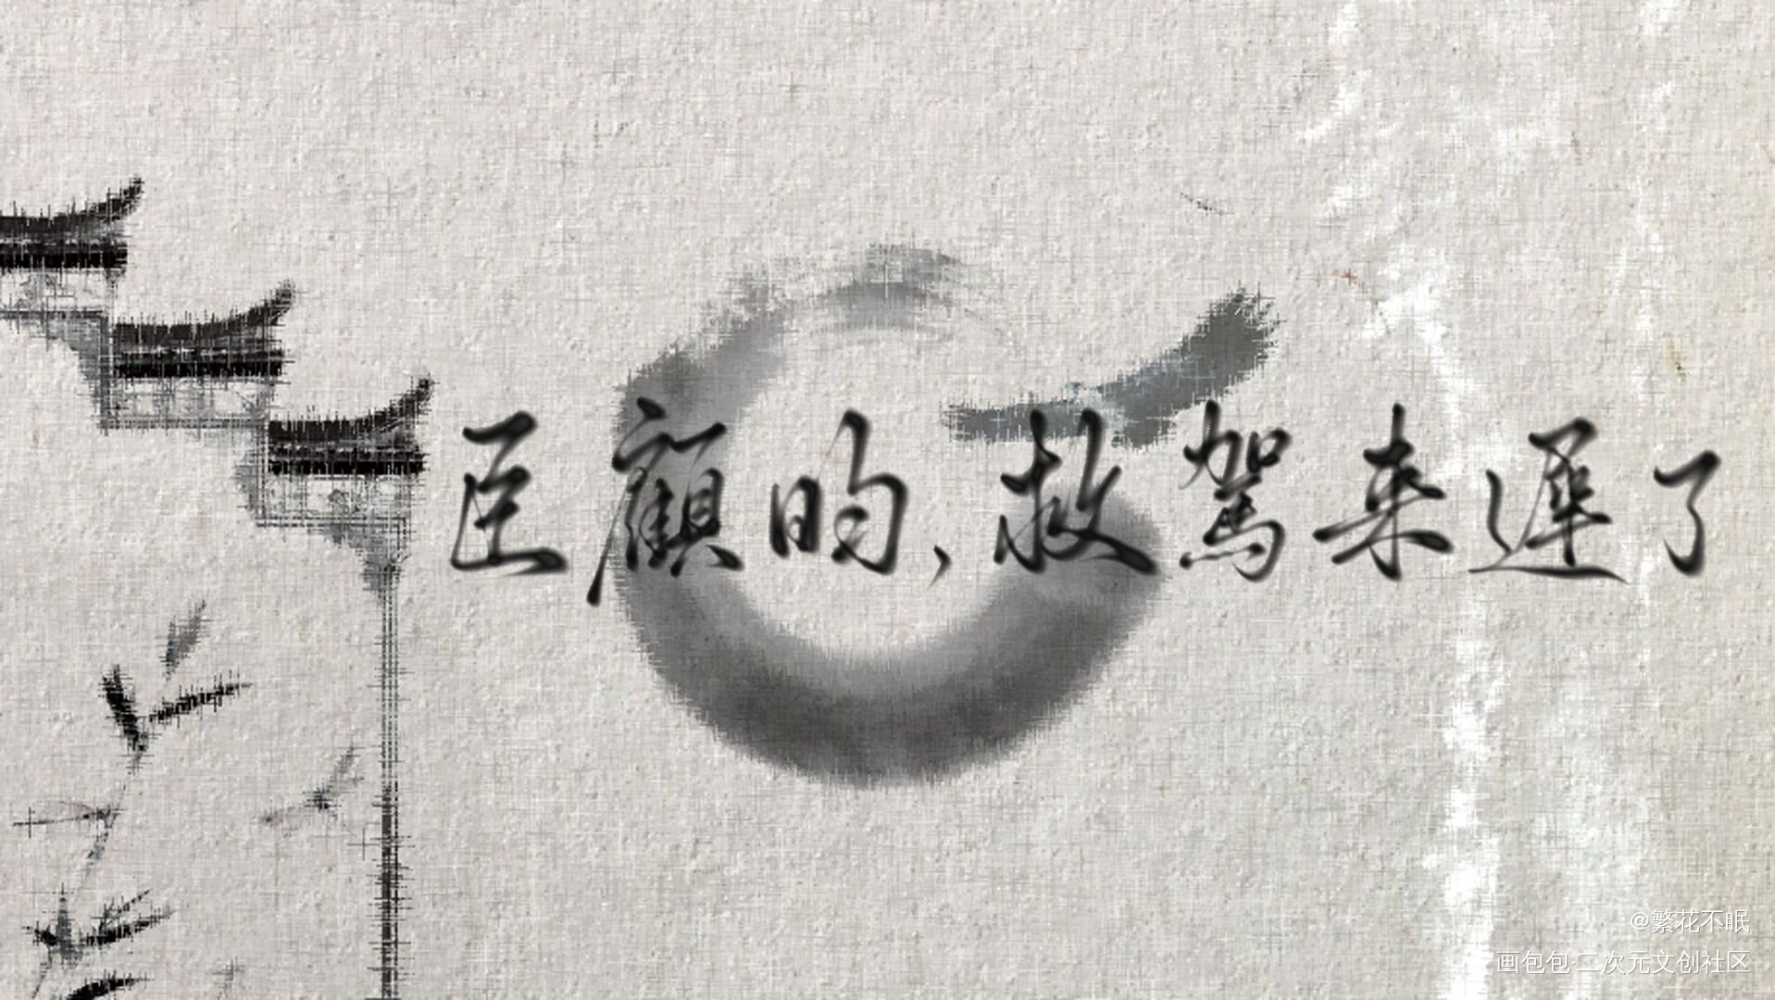 臣顧昀,救駕来遲了
@繁花不眠
画包包·二次元文创社区